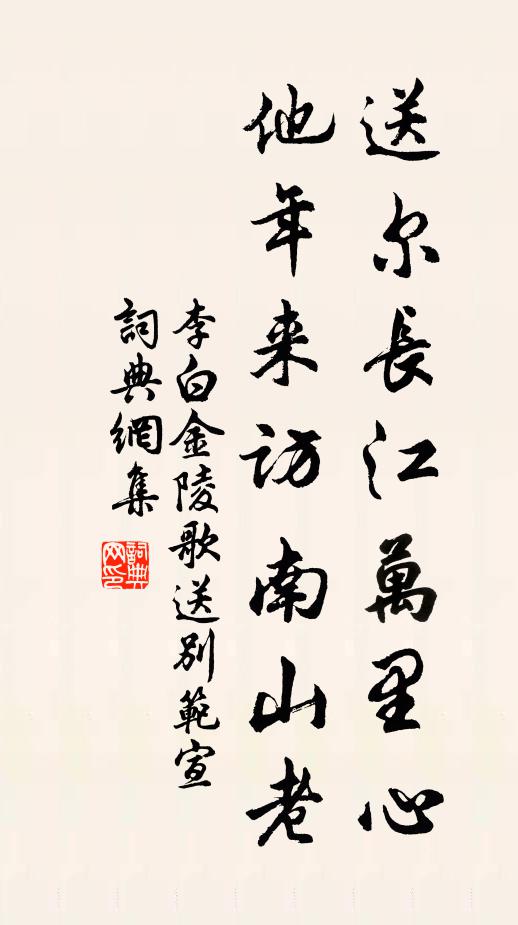 送尔長江萬里心
他年来访南山老
李白金陵歌送别範宣
詞典網集
詞典
网印